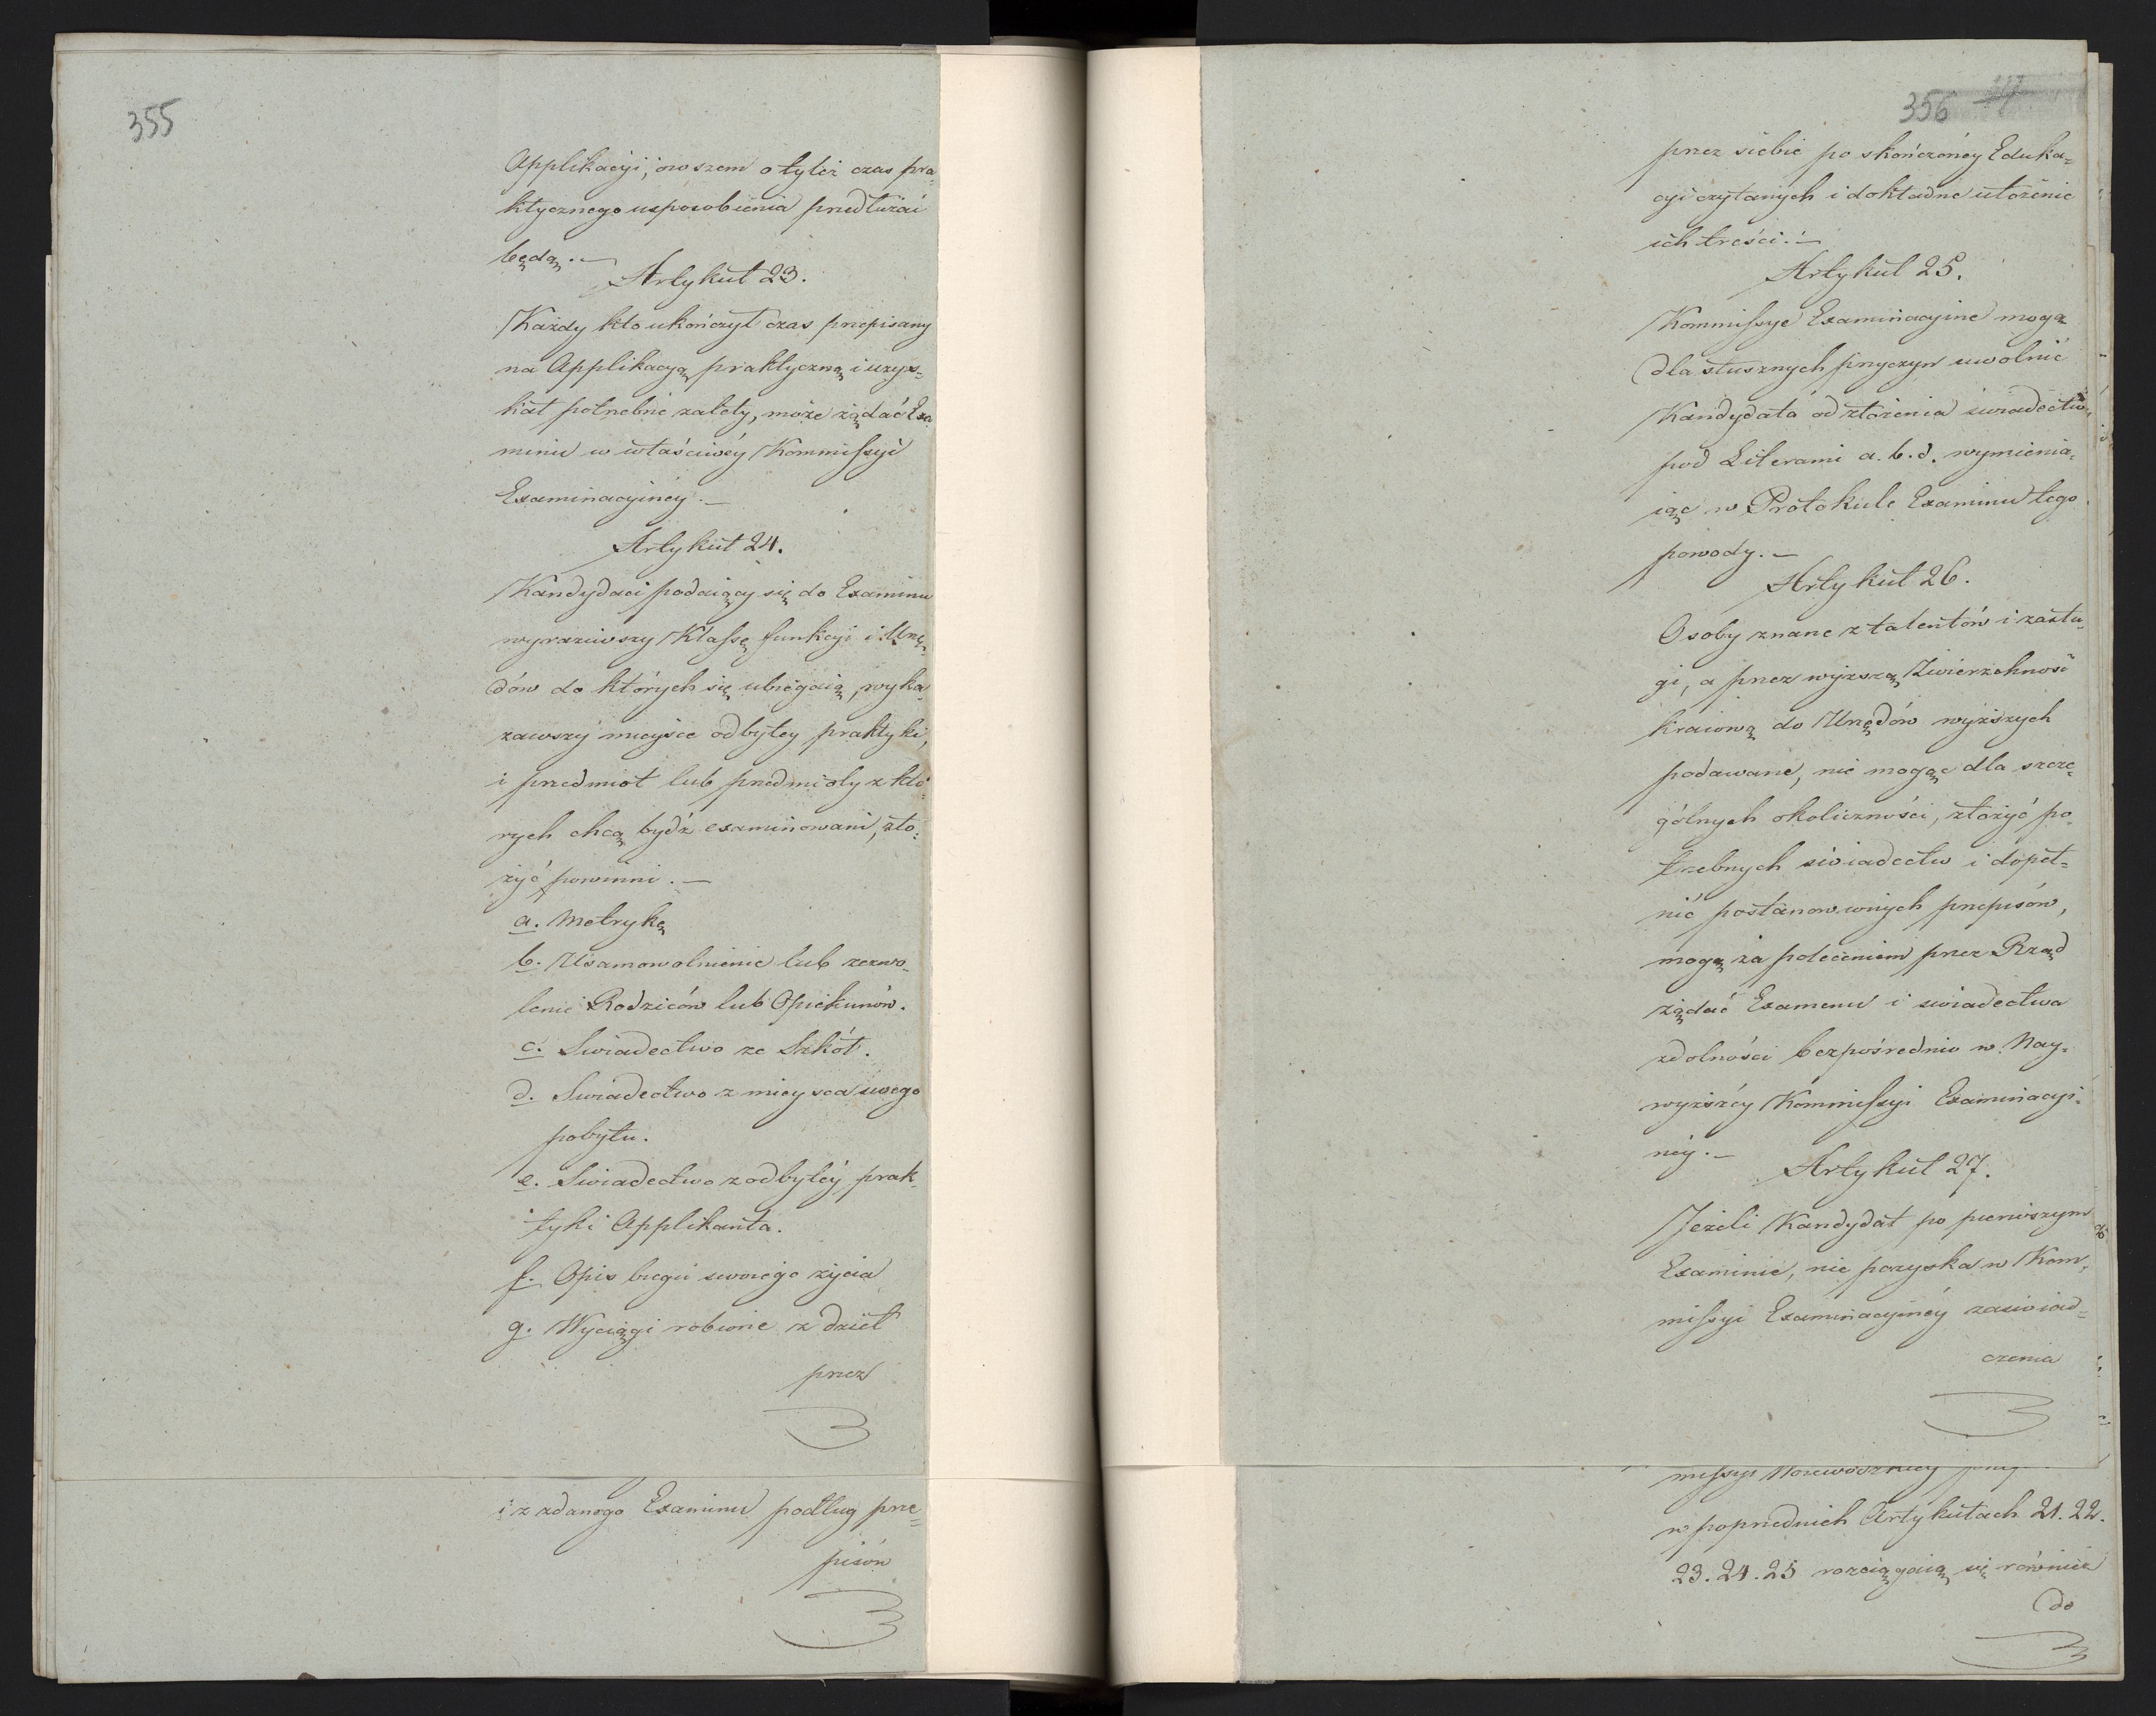 355
Applikacyi, owszem o tyleż czas pra=
ktycznego usposobienia przedłużać
będą. —
Artykuł 23.
Każdy kto ukończył czas przepisany
na Applikacyą praktyczną i uzys=
kał potrzebne zalety, może żądać Exa
minu w właściwéy Kommissyi
Examinacyinéy. —
Artykuł 24.
Kandydaci podaiący się do Examinu
wyraziwszy Klassę funkcyi i Urzę=
dów do których się ubiegaią, wyka=
zawszy mieysce odbytey praktyki,
i przedmiot lub przedmioty z któ=
rych chcą bydź examinowani, zło=
żyć powinni. —
a. Metrykę
b. Usamowolnienie lub zezwo=
lenie Rodziców lub Opiekunów.
c. Swiadectwo ze Szkół.
d. Swiadectwo z mieysca swego
pobytu.
e. Swiadectwo z odbytéy prak=
tyki Applikanta.
f. Opis biegu swoiego życia
g. Wyciągi robione z dzieł
przez
i z zdanego Examinu podług prze=
pisów
356
przez siebie po skończonéy Eduka=
cyi czytanych i dokładne ułożenie
ich treści. —
Artykuł 25.
Kommissye Examinacyine mogą
dla słusznych przyczyn uwolnić
Kandydata od złożenia swiadectw
pod Literami a. b. d. wymienia=
iąc w Protokule Examinu tego
powody. —
Artykuł 26.
Osoby znane z talentów i zasłu=
gi, a przez wyższą Zwierzchność
kraiową do Urzędów wyższych
podawane, nie mogąc dla szcze=
gólnych okoliczności, złożyć po=
trzebnych świadectw i dopeł=
nić postanowionych przepisów,
mogą za poleceniem przez Rząd
żądać Examenu i swiadectwa
zdolności bezpośrednio w Nay=
wyższéy Kommissyi Examinacyi=
néy. —
Artykuł 27.
Jeżeli Kandydat po pierwszym
Examinie, nie pozyska w Kom=
missyi Examinacyinéy zaswiad=
czenia
missyi Woiewódzkiey
w poprzednich Artykułach 21. 22.
23. 24. 25 rozciągaią się również
do